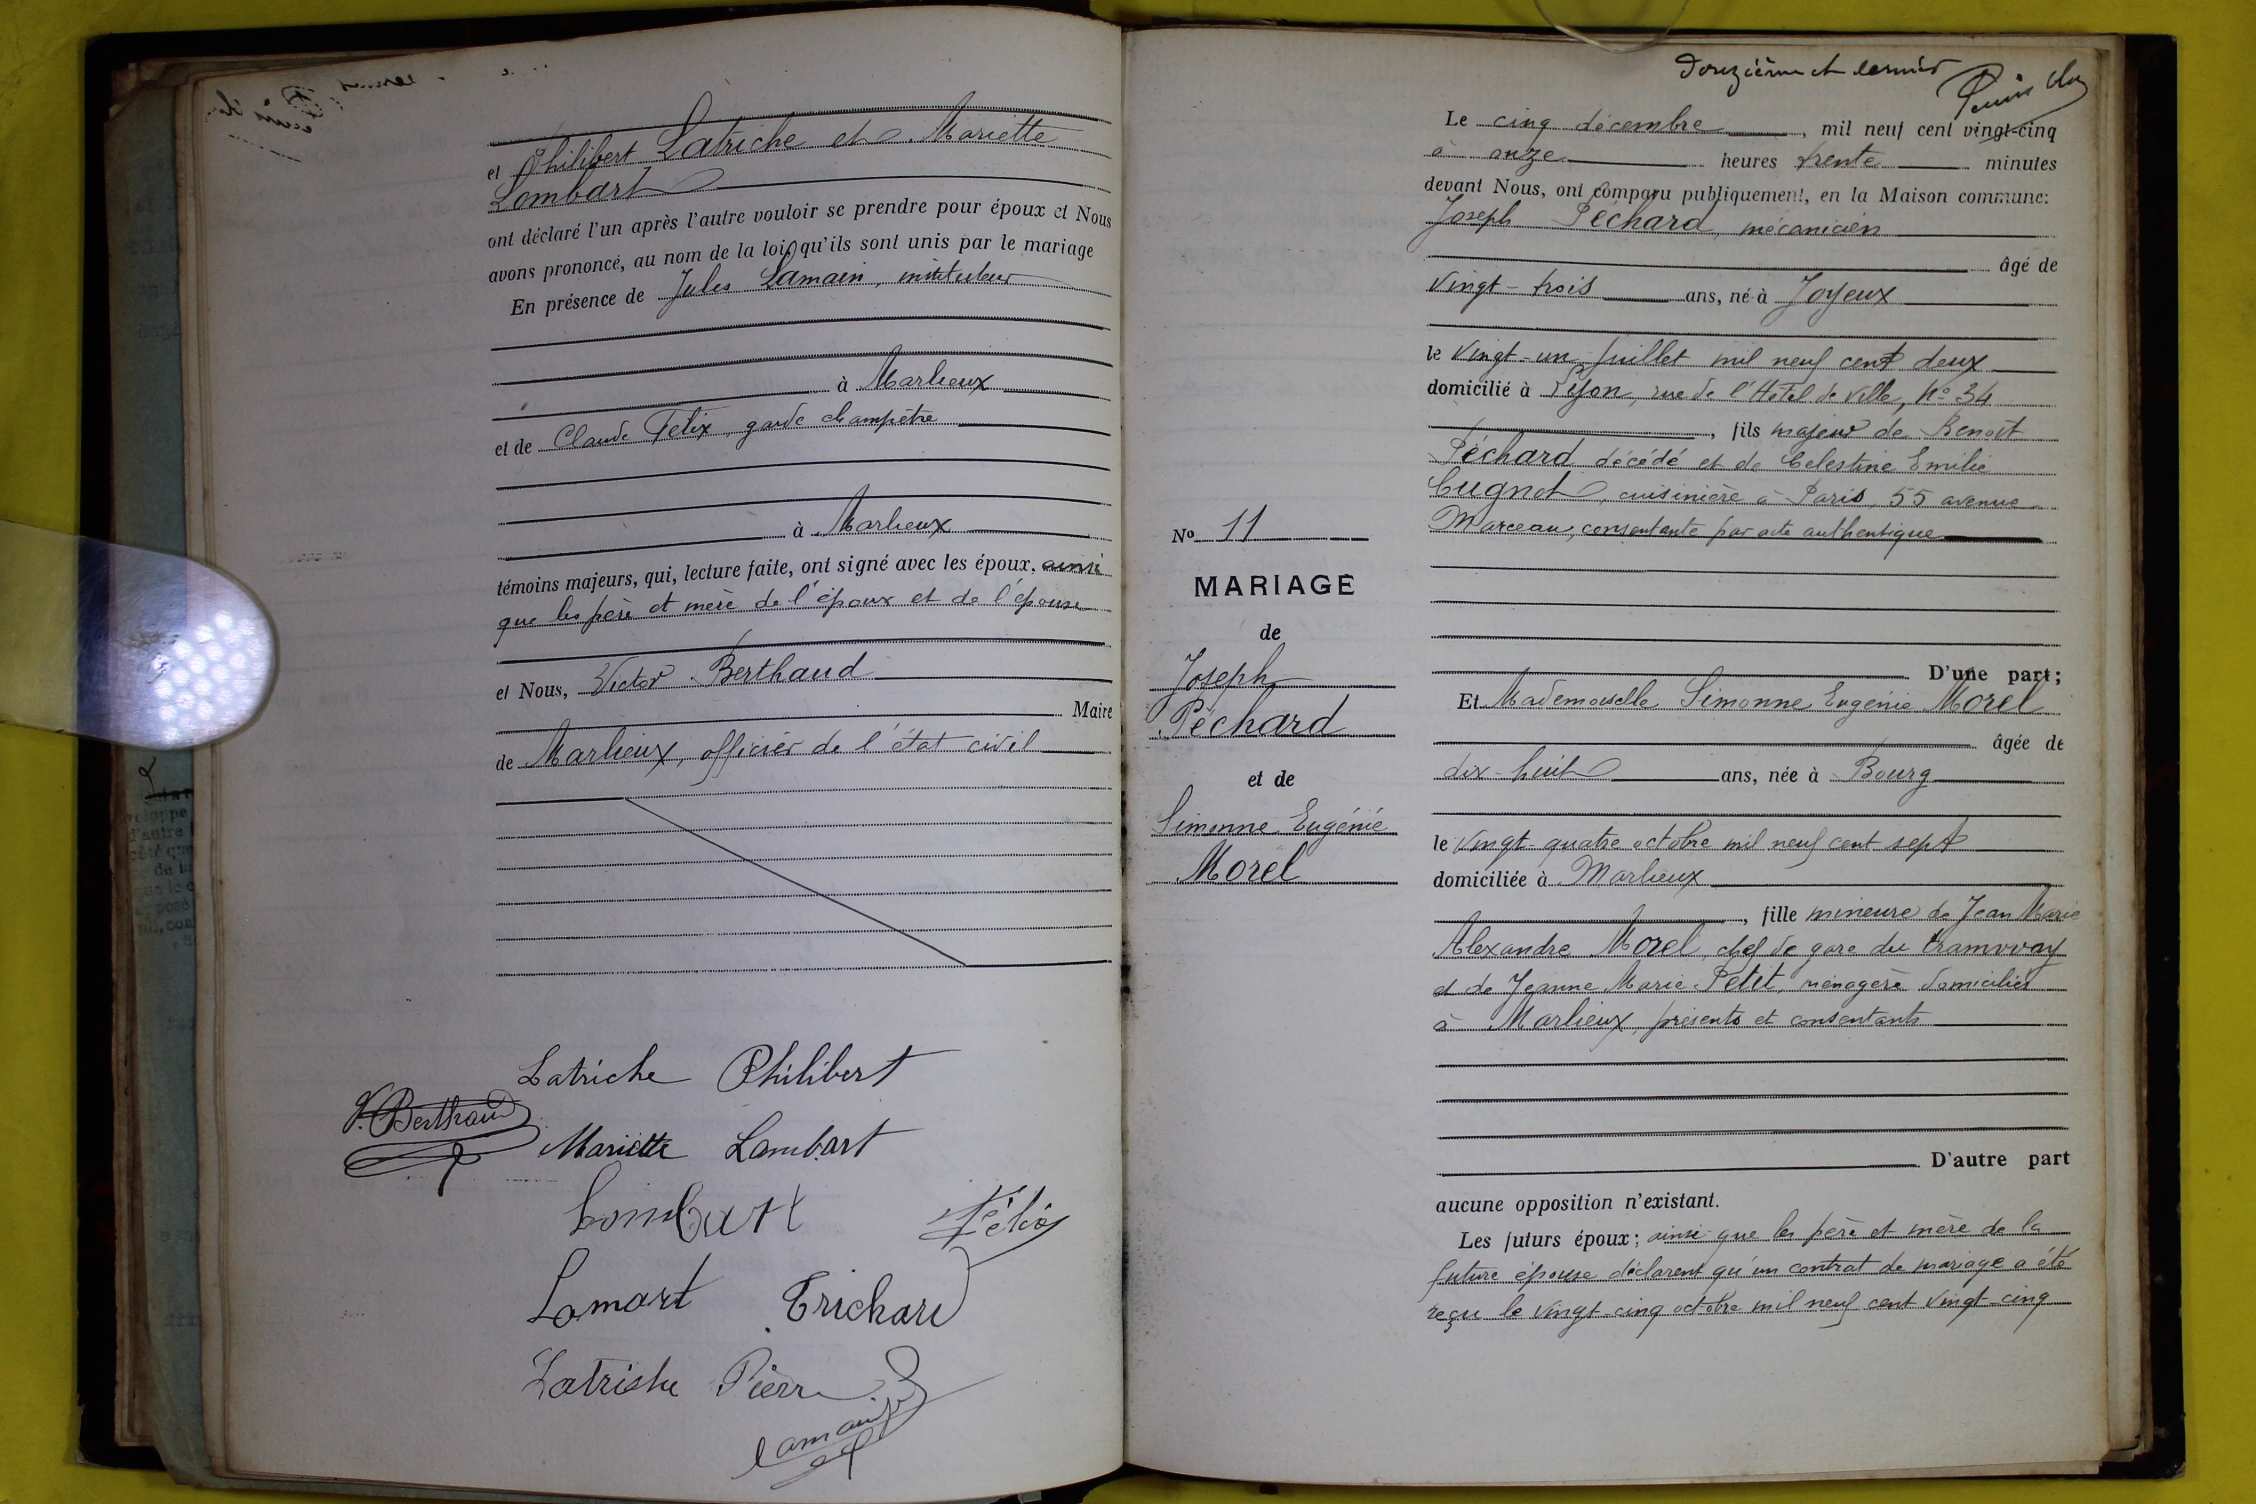 et Philibert Latriche et Mariette
Lombart
ont déclaré l'un après l'autre vouloir se prendre pour époux et Nous
avons prononcé, au nom de la loi qu'ils sont unis par le mariage
En présence de Jules Lamain, instituteur
à Marlieux
et de Claude Félix, garde champêtre
à Marlieux
témoins majeurs, qui, lecture faite, ont signé avec les époux, ainsi
que les père et mère de l'époux et de l'épouse
et Nous, Victor Berthaud
Maire
de Marlieux, officier de l'état civil
Latriche Philibert
V. Berthaud
Mariette Lombart
Lombart
Félix
Lamart Trichard
Latriche Pierre
Lamain
douzième et dernier
Le cinq décembre, mil neuf cent vingt-cinq
à onze heures trente minutes
devant Nous, ont comparu publiquement, en la Maison commune:
Joseph Péchard, mécanicien
âgé de
vingt-trois ans, né à Joyeux
le vingt-un juillet mil neuf cent deux
domicilié à Lyon, rue de l'Hôtel de Ville, No 34
, fils majeur de Benoît
Péchard décédé et de Célestine Emilie
Cugnet, cuisinière à Paris, 55 avenue
Marceau, consentante par acte authentique
No 11
MARIAGE
de
Joseph
Péchard
et de
Simonne Eugénie
Morel
D'une part;
Et Mademoiselle Simonne Eugénie Morel
âgée de
dix-huit ans, née à Bourg
le vingt-quatre octobre mil neuf cent sept
domiciliée à Marlieux
, fille mineure de Jean Marie
Alexandre Morel, chef de gare du tramway
et de Jeanne Marie Petit, ménagère domiciliés
à Marlieux, présents et consentants
D'autre part
aucune opposition n'existant.
Les futurs époux; ainsi que les père et mère de la
future épouse déclarent qu'un contrat de mariage a été
reçu le vingt-cinq octobre mil neuf cent vingt-cinq